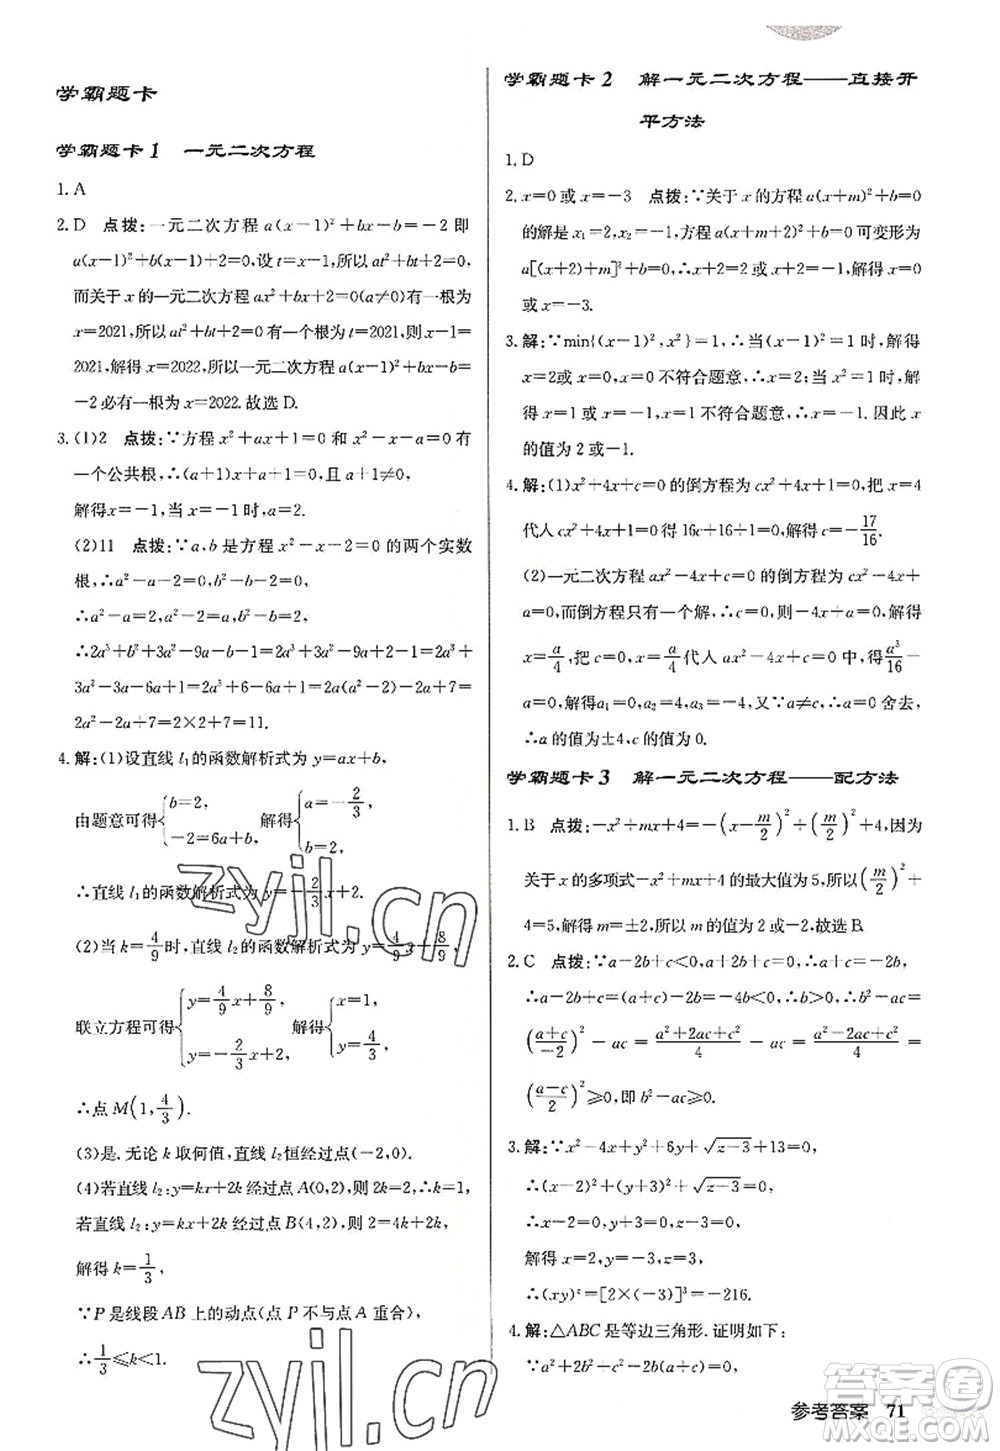 学霸题卡
学霸题卡1 一元二次方程
1. A
2. D 点拨:一元二次方程 a(x−1)²+bx−b=−2 即
a(x−1)²+b(x−1)+2=0,设 t=x−1,所以 at²+bt+2=0,
而关于 x 的一元二次方程 ax²+bx+2=0(a≠0)有一根为
x=2021,所以 at²+bt+2=0 有一个根为 t=2021,则 x−1=
2021,解得 x=2022,所以一元二次方程 a(x−1)²+bx−b=
−2 必有一根为 x=2022.故选 D.
3. (1)2 点拨:∵方程 x²+ax+1=0 和 x²−x−a=0 有
一个公共根,∴(a+1)x+a+1=0,
解得x=−1,当 x=−1 时,a=2.
(2)11 点拨:∵a,b 是方程 x²−x−2=0 的两个实数
根,∴a²−a−2=0,b²−b−2=0,
∴a²−a=2,b²−b=2,
∴2a³+b²+3a²−9a−b+5=2a³+3a²−9a+2+5=
3a²−2a³−3a−2a²+7=2a³+
2a²−2a+7=2×2+7=11.
4. 解:(1)设直线 l₁的函数解析式为 y=ax+b,
由题意可得{b=2, −2=6a+b, 解得{a=−2/3, b=2,
∴直线 l₁的函数解析式为 y=−2/3x+2.
(2)当 k=4/9时,直线 l₂的函数解析式为 y=4/9x+8/9,
联立方程可得{y=4/9x+8/9, y=−2/3x+2, 解得{x=1, y=4/3,
∴点 M(1,4/3).
(3)是.无论 k 取何值,直线 l₂恒经过点(−2,0).
(4)若直线 l₂:y=kx+2k 经过点 A(0,2),则 2k=2,∴k=1,
若直线 l₂:y=kx+2k 经过点 B(4,2),则 2=4k+2k,
解得 k=1/3,
∵P 是线段 AB 上的动点(点 P 不与点 A 重合),
∴1/3≤k<1.
学霸题卡2 解一元二次方程——直接开
平方法
1. D
2. x=0 或 x=−3 点拨:∵关于 x 的方程 a(x+m)²+b=0
的解是 x₁=2,x₂=−1,∴方程 a(x+m+2)²+b=0 可变形为
a[(x+2)+m]²+b=0,∴x+2=2 或 x+2=−1,解得 x=0
或 x=−3.
3. 解:∵min{(x−1)²,x²}=1,∴当(x−1)²=1 时,解得
x=2或 x=0,x=0 不符合题意,∴x=2;当 x²=1 时,解
得 x=1 或 x=−1,x=1 不符合题意,∴x=−1. 综上,x
的值为 2 或−1.
4. 解:(1)x²+4x+c=0 的倒方程是 cx²+4x+1=0,把 x=4
代人 cx²+4x+1=0 得 16c+16+1=0,解得 c=−17/16.
(2)一元二次方程 ax²−4x+c=0 的倒方程为 cx²−4x+
a=0,而倒方程只有一个解,∴c=0,则−4x+a=0,解得
x=a/4,把 c=0,x=a/4代人 ax²−4x+c=0 中,得a³/16−
a=0,解得a₁=0,a₂=4,a₃=−4,又∵a=0 舍去,
∴a 的值为 4 或−4, c 的值为 0.
学霸题卡3 解一元二次方程——配方法
1. B 点拨:−x²+mx+4=−(x−m/2)²+(m/2)²+4,因为
关于 x 的多项式−x²+mx+4 的最大值为 5,所以(m/2)²+
4=5,解得 m=±2,所以 m 的值为 2 或−2,故选 B.
2. C 点拨:∵a−2b+c<0,a+2b+c=0,∴a+c=−2b,
∴a−2b+c=−4b<0,∴b>0,∴b²−ac=
((a+c)/−2)²−ac=(a²+2ac+c²)/4−ac=(a²−2ac+c²)/4=
((a−c)/2)²≥0,即 b²−ac≥0.
3. 解:∵x²−4x+y²+6y+√(z−3)+13=0,
∴(x−2)²+(y+3)²+√(z−3)=0,
∴x−2=0,y+3=0,z−3=0,
解得 x=2,y=−3,z=3,
∴(xy)ᶻ=[2×(−3)]³=−216.
4. 解:△ABC 是等边三角形. 证明如下:
∵a²+2b²+c²−2b(a+c)=0,
参考答案 71
zyjl.cn
zyjl.cn
答案圈
MXQE.COM